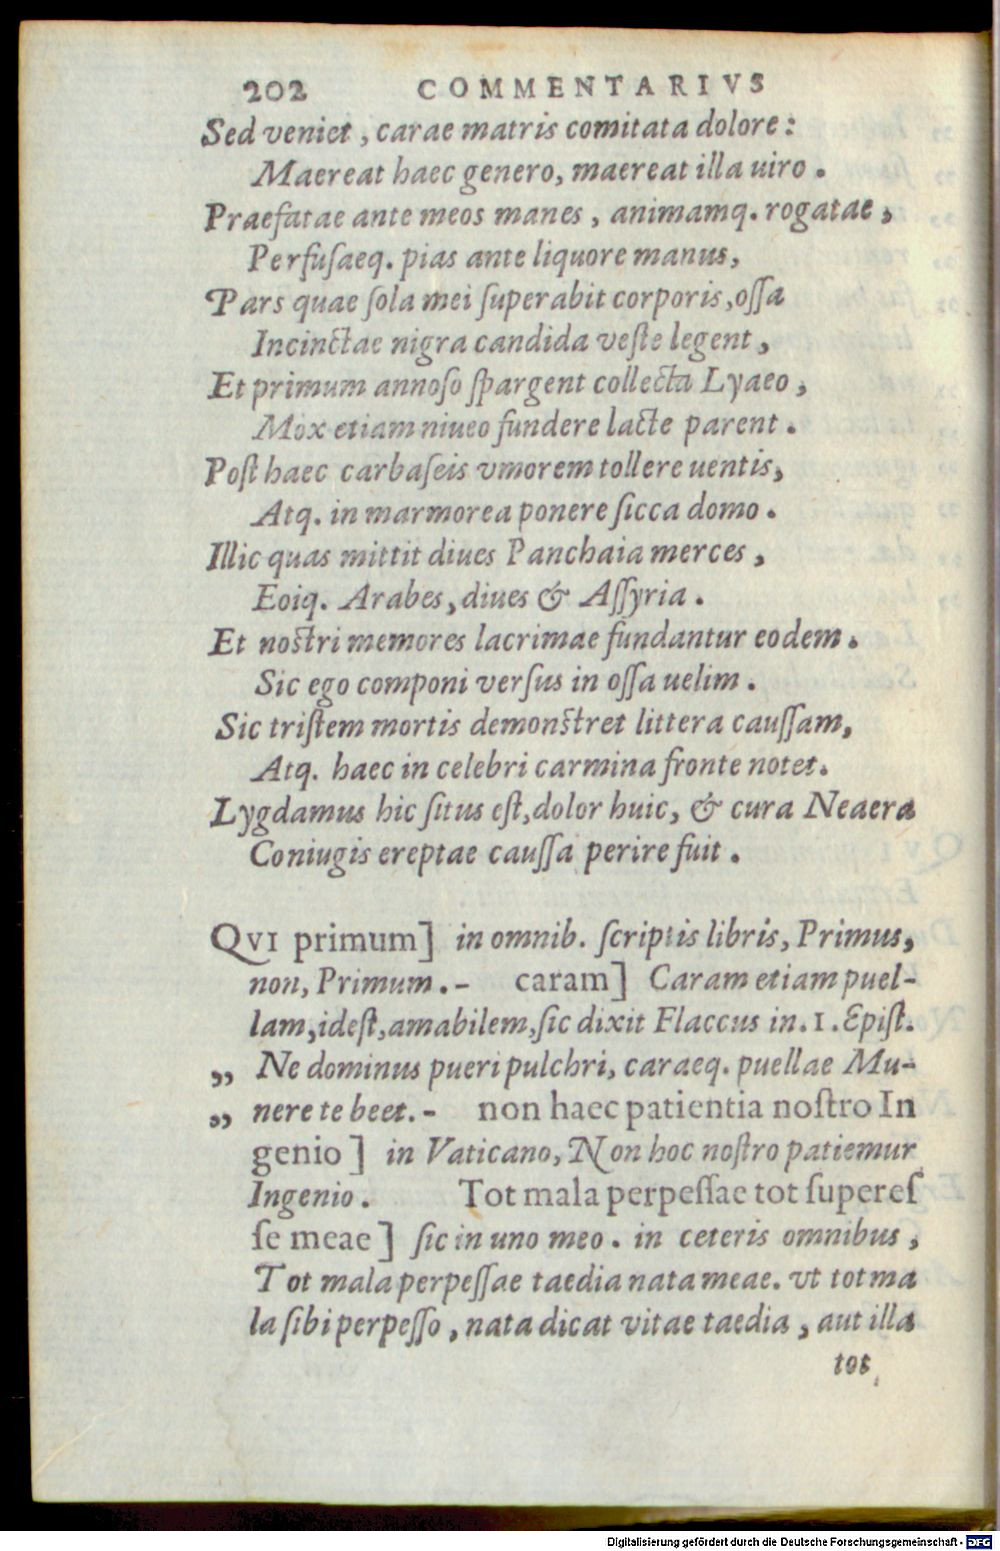 202 COMMENTARIVS
Sed veniet, carae matris comitata dolore:
Maereat haec genero, maereat illa uiro.
Praefatae ante meos manes, animamq. rogatae,
Perfusaeq. pias ante liquore manus,
Pars quae sola mei superabit corporis, ossa
Incinctae nigra candida veste legent,
Et primum annoso spargent collecta Lyaeo,
Mox etiam niueo fundere lacte parent.
Post haec carbaseis vmorem tollere uentis,
Atq. in marmorea ponere sicca domo.
Illic quas mittit diues Panchaia merces,
Eoiq. Arabes, diues & Assyria.
Et nostri memores lacrimae fundantur eodem.
Sic ego componi versus in ossa uelim.
Sic tristem mortis demonstret littera caussam,
Atq. haec in celebri carmina fronte notet.
Lygdamus hic situs est, dolor huic, & cura Neaera
Coniugis ereptae caussa perire fuit.
QVI primum] in omnib. scriptis libris, Primus,
non, Primum.- caram] Caram etiam puel-
lam, idest, amabilem, sic dixit Flaccus in. 1. Epist.
„ Ne dominus pueri pulchri, caraeq. puellae Mu-
„ nere te beet.- non haec patientia nostro In
genio] in Vaticano, Non hoc nostro patiemur
Ingenio. Tot mala perpessae tot superes
se meae] sic in uno meo. in ceteris omnibus,
Tot mala perpessae taedia nata meae. vt tot ma
la sibi perpesso, nata dicat vitae taedia, aut illa
tot
Digitalisierung gefördert durch die Deutsche Forschungsgemeinschaft - DFG